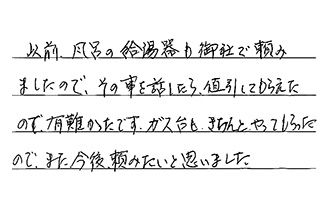 以前、風呂の給湯器も御社で頼み
ましたので、その事を話したら、値引してもらえた
ので、有難かったです。ガス台も、きちんとやってもらった
ので、また今後、頼みたいと思いました